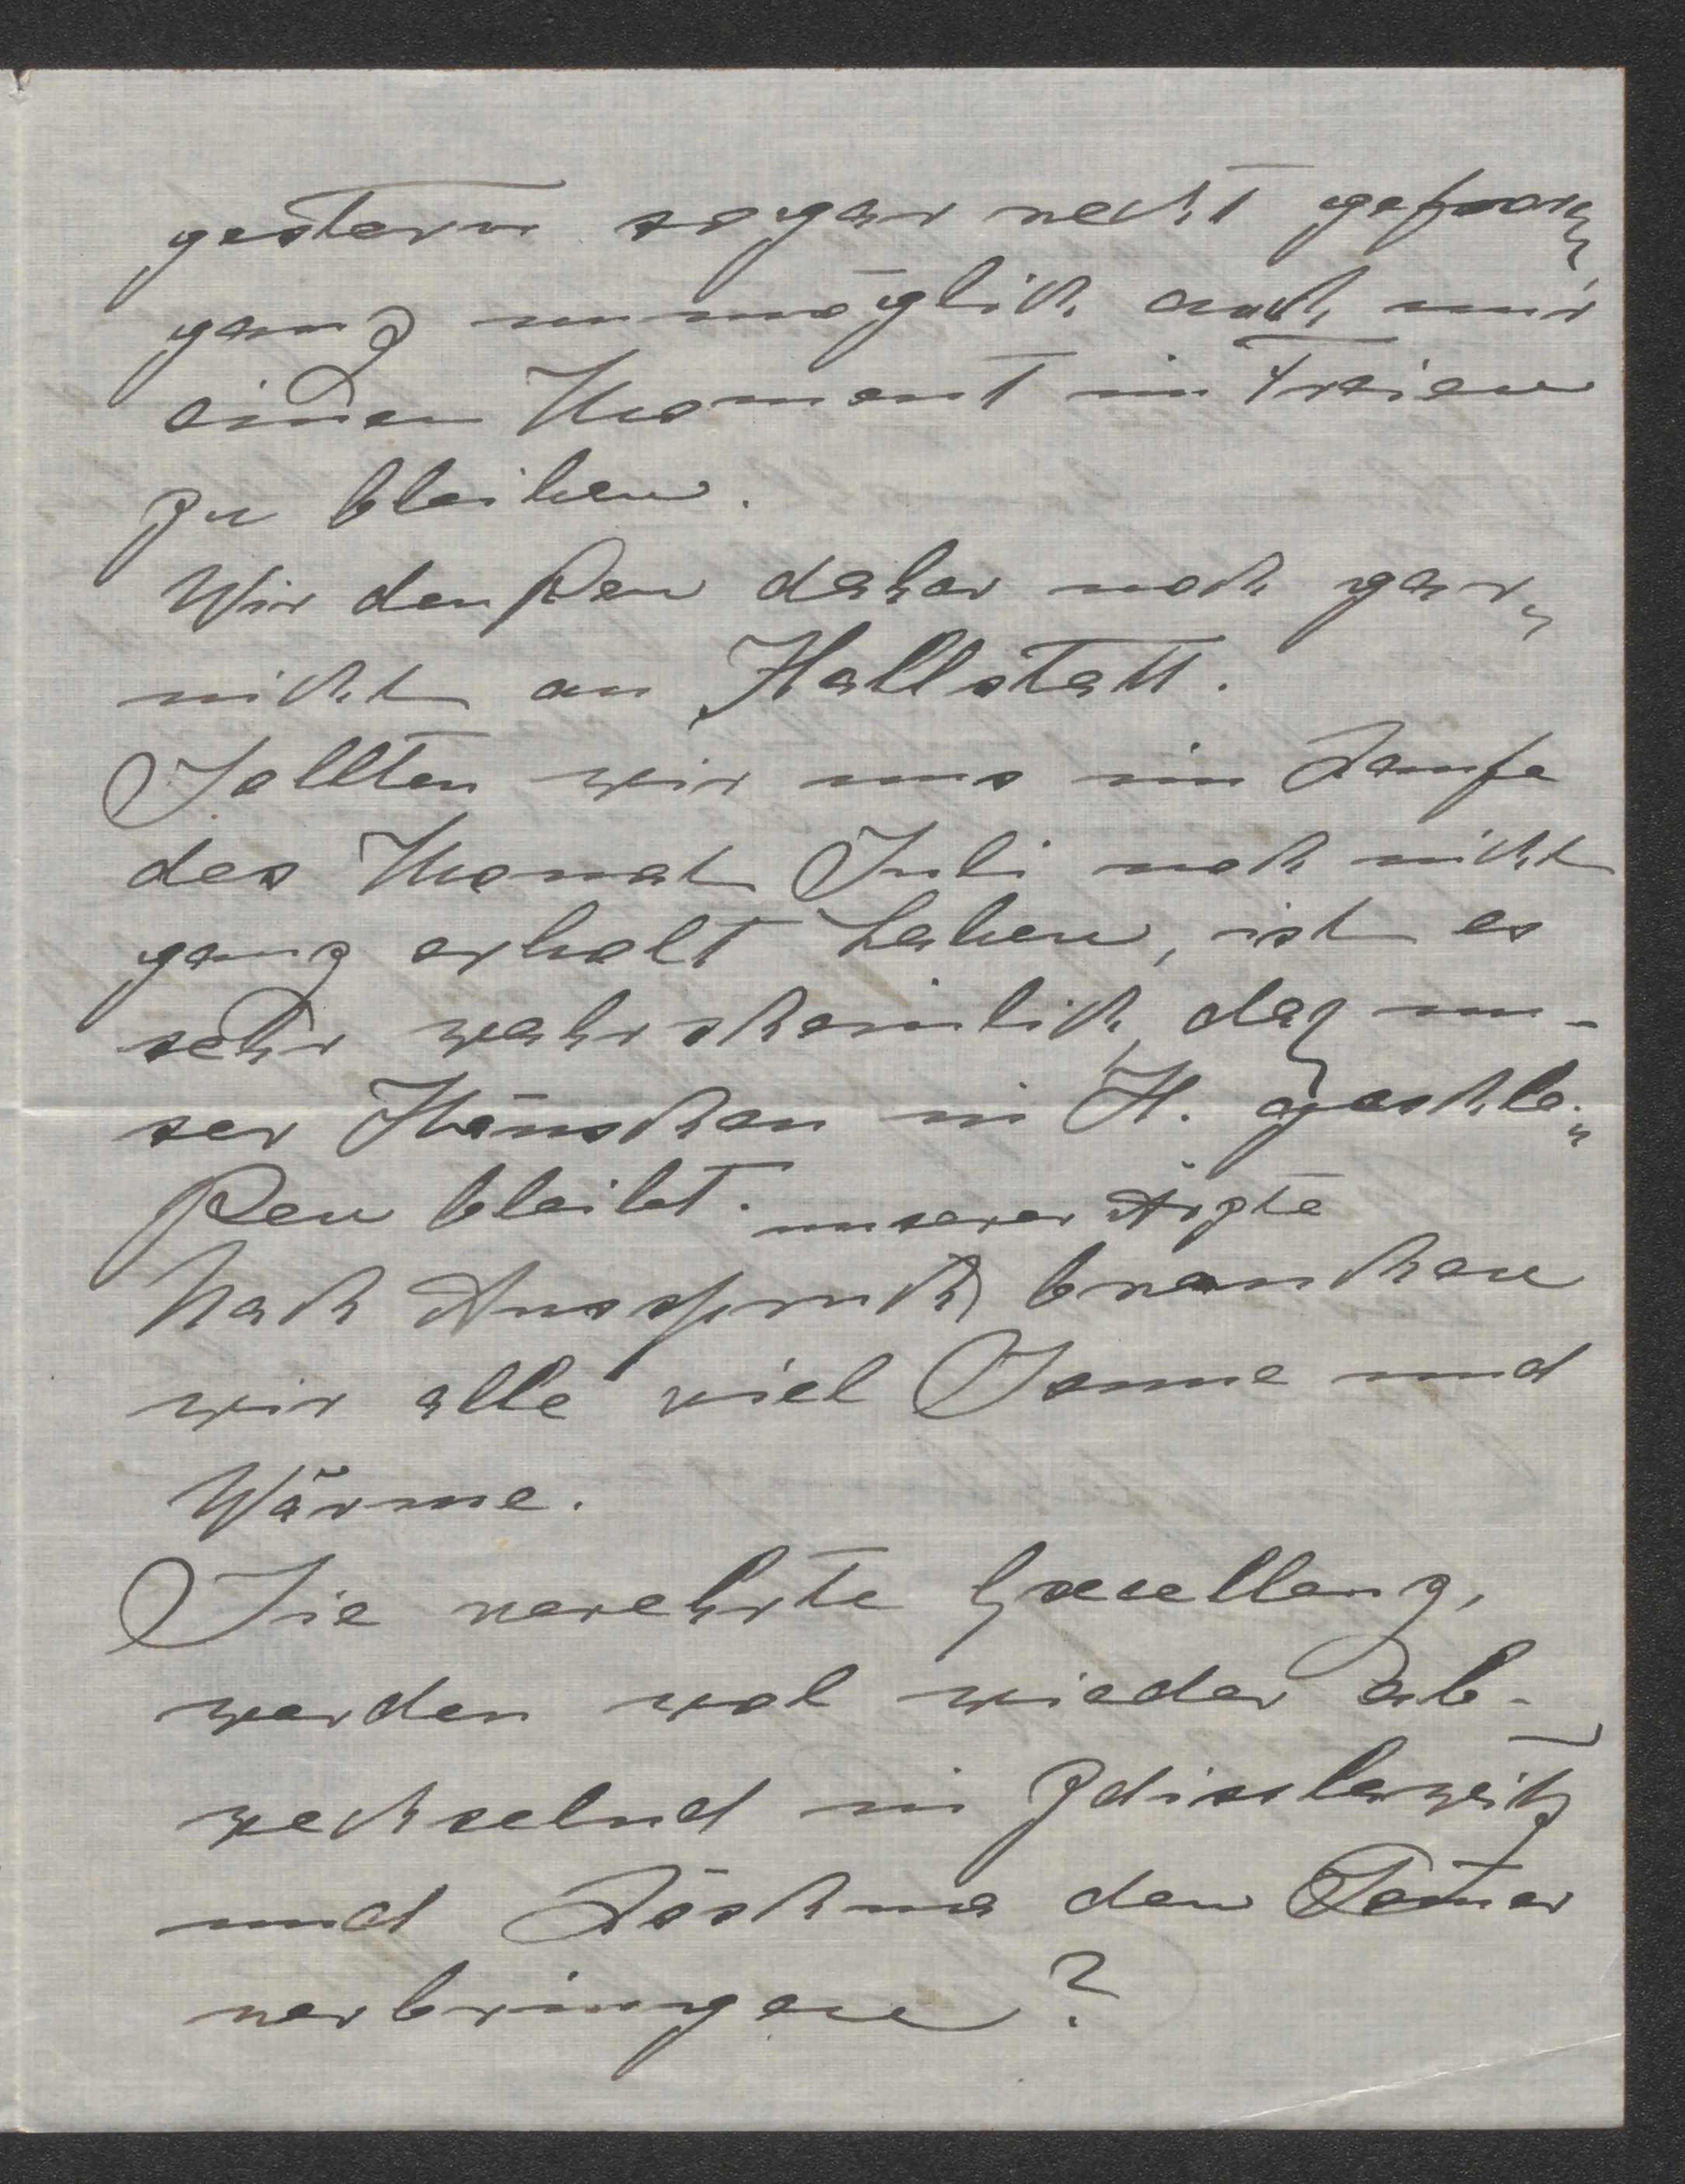 gestern sogar recht gefroren,
ganz unmöglich auch nur
einen Moment im Freien
zu bleiben.
Wir denken daher noch gar
nicht an Hallstatt.
Sollten wir uns im Laufe
des Monat Juli noch nicht
ganz erholt haben, ist es
sehr wahrscheinlich, daß un-
ser Häuschen in H. geschlo-
ßen bleibt.
unserer Ärzte
Nach Ausspruch brauchen
wir alle viel Sonne und
Wärme.
Sie verehrte Excellenz,
werden wol wieder ab-
wechselnd in Zdisslawitz
und Löschna den Somer
verbringen?